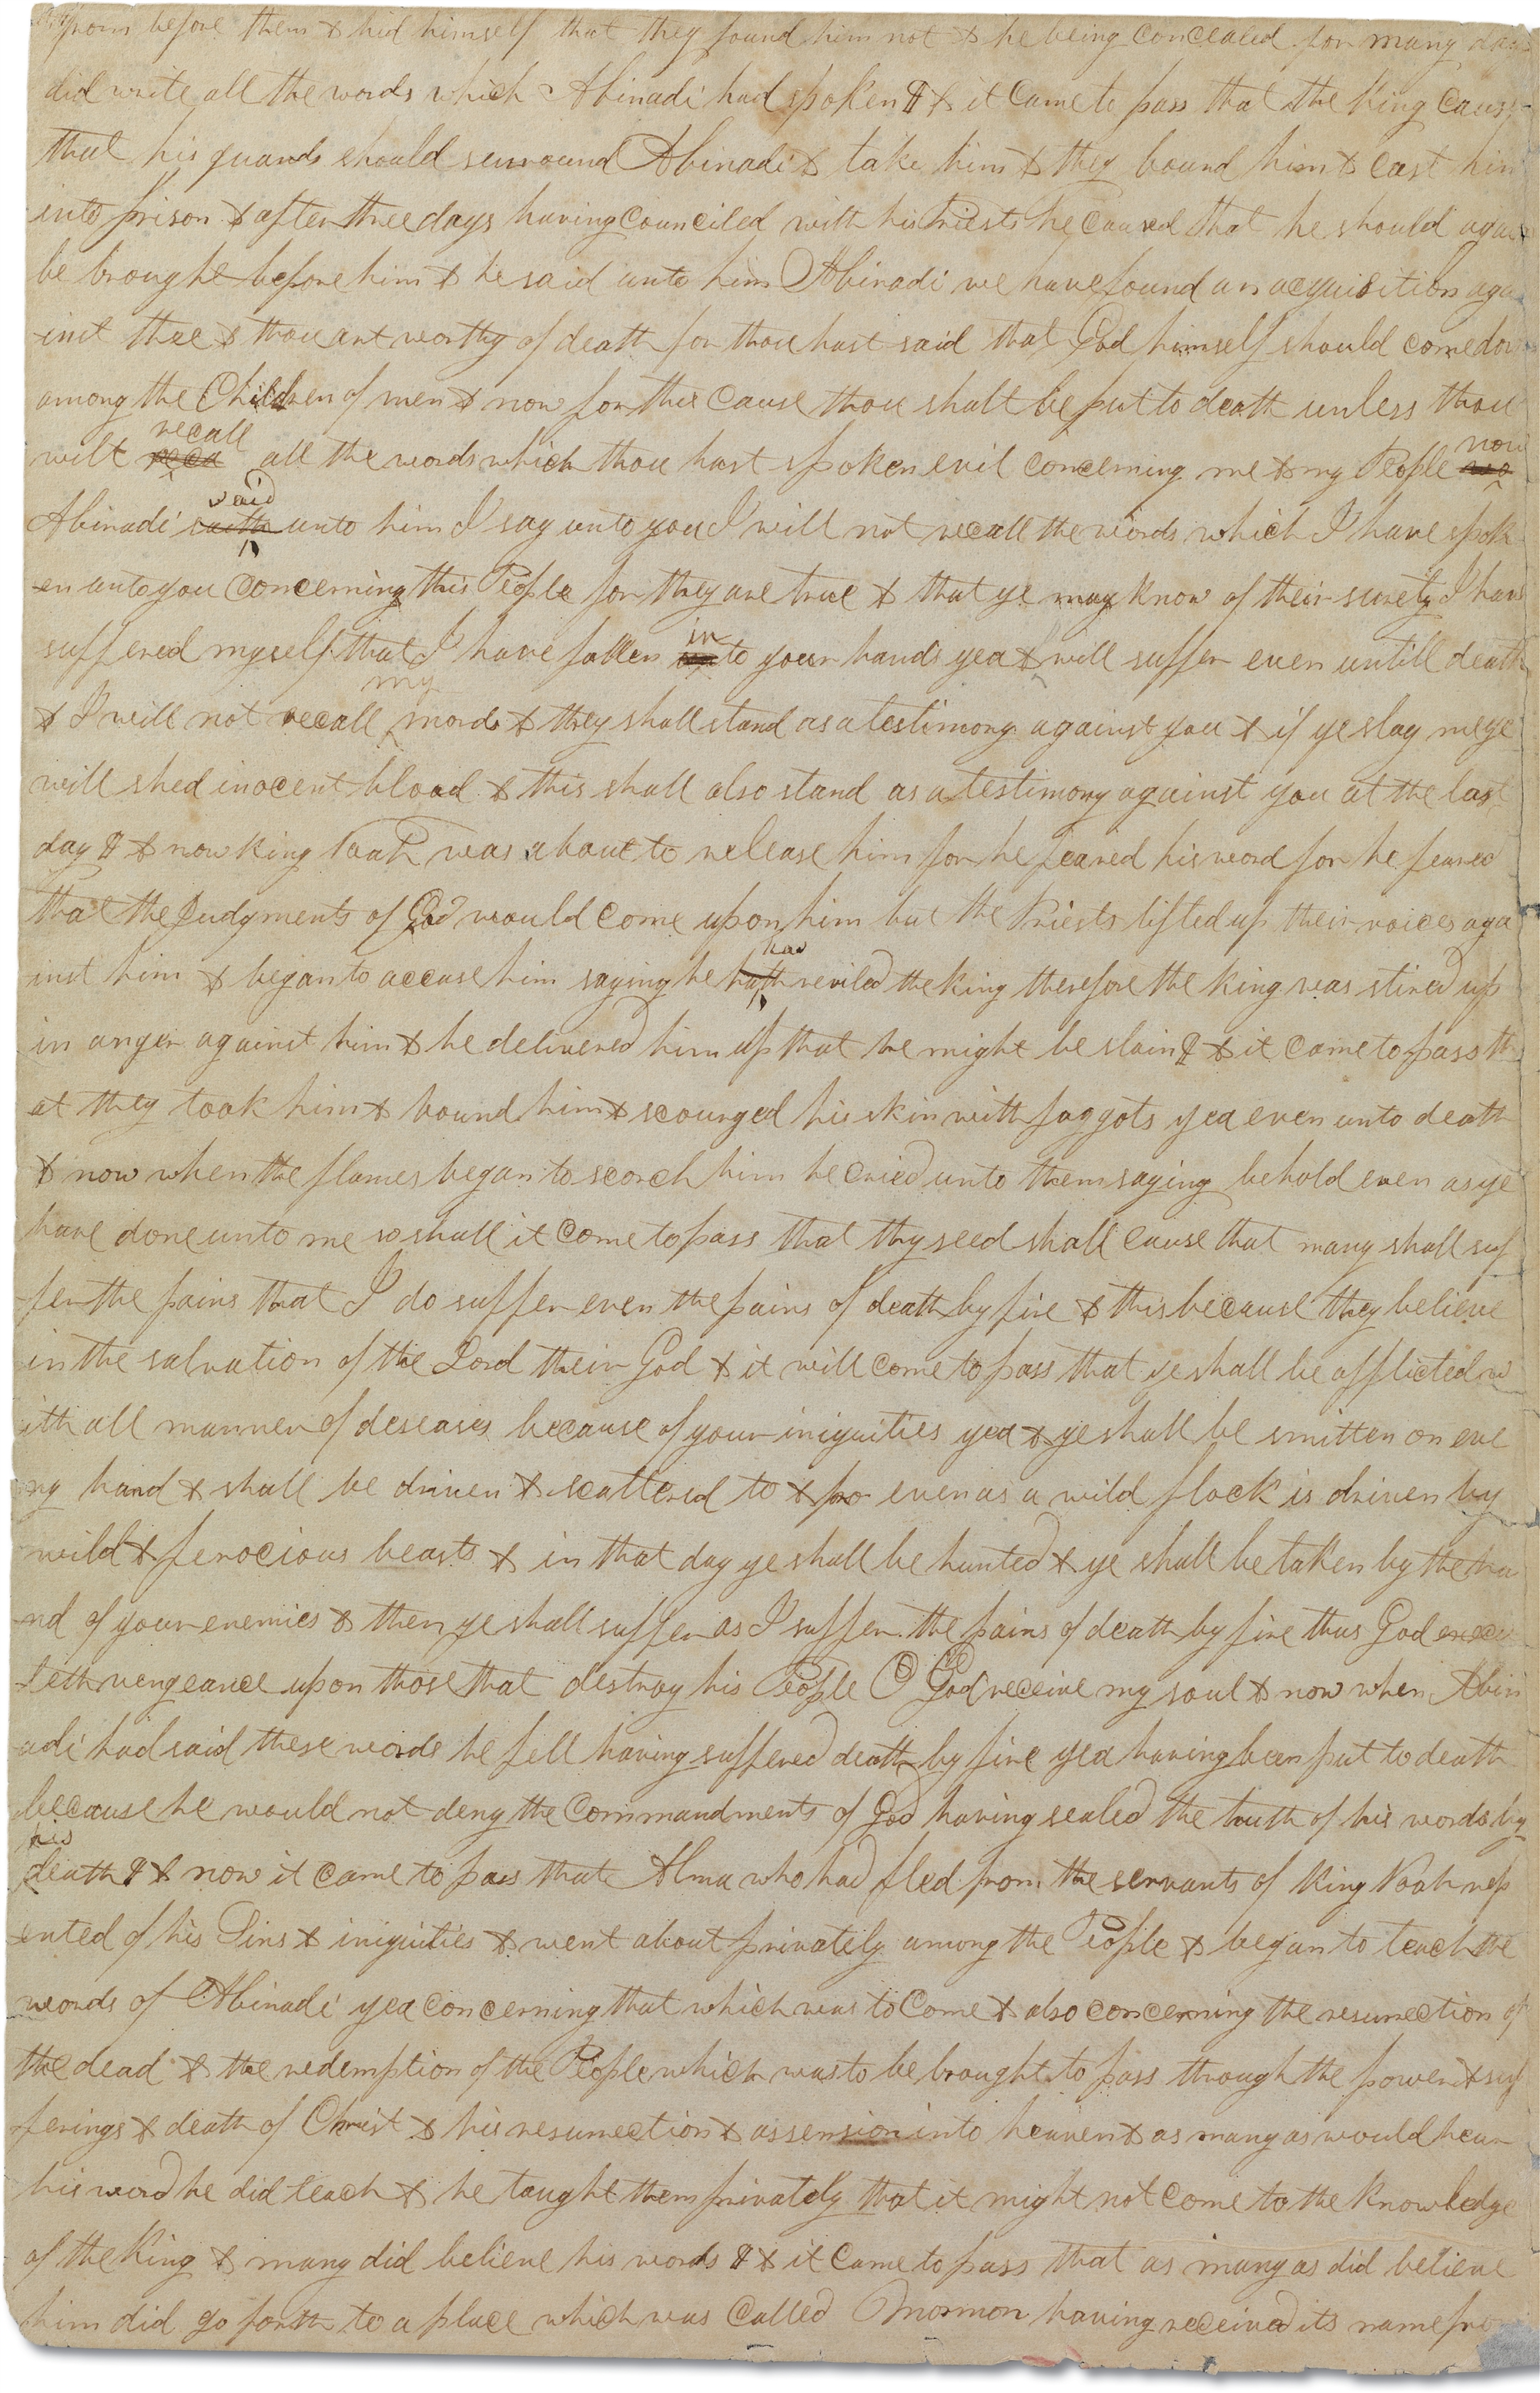 from before them & hid himself that they found him not & he being concealed for many days
did write all the words which Abinadi had spoken ¶ & it came to pass that the King caus-
that his guards should surround Abinadi & take him & they bound him & cast him
into prison & after three days having counciled with his Priests he caused that he should again
be brought before him & he said unto him Abinadi we have found an acquisition aga
-inst thee & thou art worthy of death for thou hast said that God himself should come down
among the Children of men & now for this cause thou shalt be put to death unless thou
wilt reca recall all the words which thou hast spoken evil concerning me & my People no now
Abinadi saith said unto him I say unto you I will not recall the words which I have spok
-en unto you concerning this People for they are true & that ye may know of their surety I have
suffered myself that I have fallen into your hands yea & will suffer even untill death
& I will not recall my words & they shall stand as a testimony against you & if ye slay me ye
will shed inocent blood & this shall also stand as a testimony against you at the last
day ¶ & now king Noah was about to release him for he feared his word for he feared
that the Judgments of God would come upon him but the Priests lifted up their voices aga
inst him & began to accuse him saying he hath has reviled the king therefore the king was stired up
in anger against him & he delivered him up that he might be slain ¶ & it came to pass th
at they took him & bound him & scourged his skin with faggots yea even unto death
& now when the flames began to scorch him he cried unto them saying behold even as ye
have done unto me so shall it come to pass that thy seed shall cause that many shall suf
-fer the pains that I do suffer even the pains of death by fire & this because they believe
in the salvation of the Lord their God & it will come to pass that ye shall be afflicted w
ith all manner of deseases because of your iniquities yea & ye shall be smitten on eve
ry hand & shall be driven & scattered to & fro even as a wild flock is driven by
wild & ferocious beasts & in that day ye shall be hunted & ye shall be taken by the ha
nd of your enemies & then ye shall suffer as I suffer the pains of death by fire thus God execu
teth vengeance upon those that destroy his People O God receive my soul & now when Abin
adi had said these words he fell having suffered death by fire yea having been put to death
because he would not deny the Commandments of God having sealed the truth of his words by
his death ¶ & now it came to pass that Alma who had fled from the servants of king Noah rep
ented of his Sins & iniquities & went about privately among the People & began to teach the
words of Abinadi yea concerning that which was to come & also concerning the resurrection of
the dead & the redemption of the People which was to be brought to pass through the power & suf
ferings & death of Christ & his resurrection & assension into heaven & as many as would hear
his word he did teach & he taught them privately that it might not come to the knowledge
of the King & many did believe his words ¶ & it came to pass that as many as did believe
him did go forth to a place which was called Mormon having received its name from